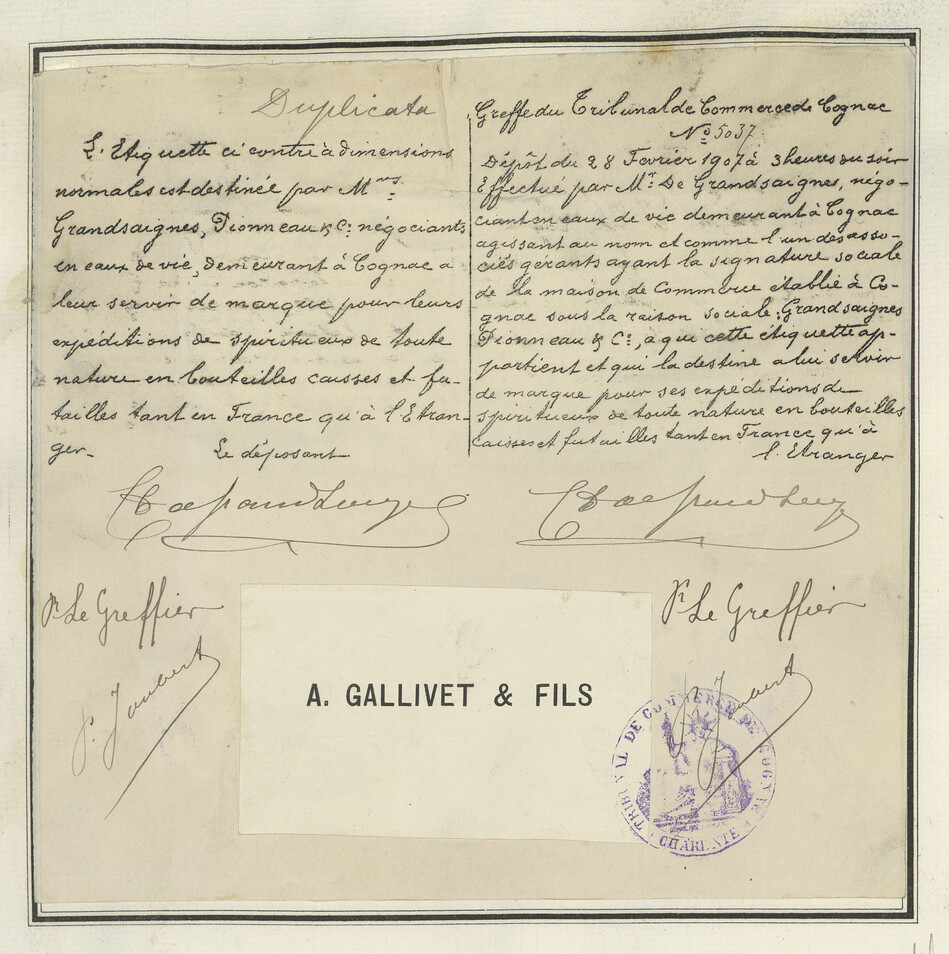 Duplicata
L'Etiquette ci contre à dimensions
normales est destinée par Mrs
Grandsaignes, Pionneau & Cie négociants
en eaux de vie, demeurant à Cognac a
leur servir de marque pour leurs
expéditions de spiritueux de toute
nature en bouteilles caisses et fu-
tailles tant en France qu'à l'Etran-
ger.
Le déposant
Greffe du Tribunal de Commerce de Cognac
No 5037.
Dépôt du 28 Fevrier 1907 à 3 heures du soir
Effectué par Mr. De Grandsaignes, négo-
ciant en eaux de vie demeurant à Cognac
agissant au nom et comme l'un des asso-
ciés gérants ayant la signature sociale
de la maison de Commerce établie à Co-
gnac sous la raison sociale: Grandsaignes
Pionneau & Cie, a qui cette étiquette ap-
partient et qui la destine a lui servir
de marque pour ses expéditions de
spiritueux de toute nature en bouteilles
caisses et futailles tant en France qu'à
l'Etranger
Pr Le Greffier
P. Joubert
Pr Le Greffier
P. Joubert
A. GALLIVET & FILS
TRIBUNAL DE COMMERCE DE COGNAC
CHARENTE